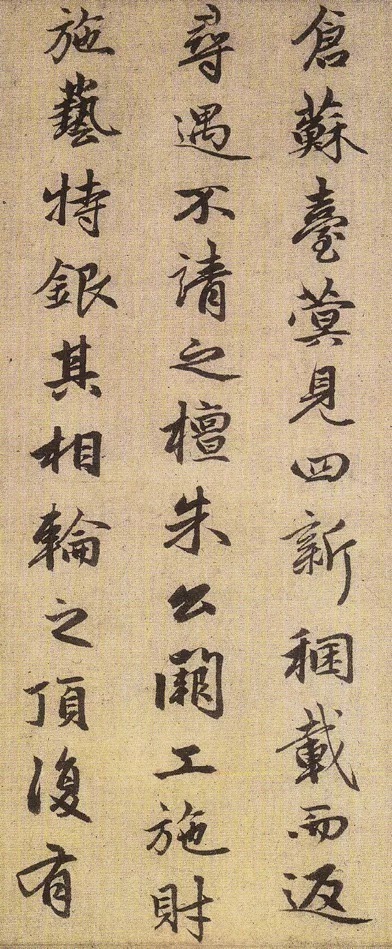 倉蘇臺蓂見四新稛載而返
尋遇不請之檀朱公開工施財
施藝特銀其相輪之頂復有